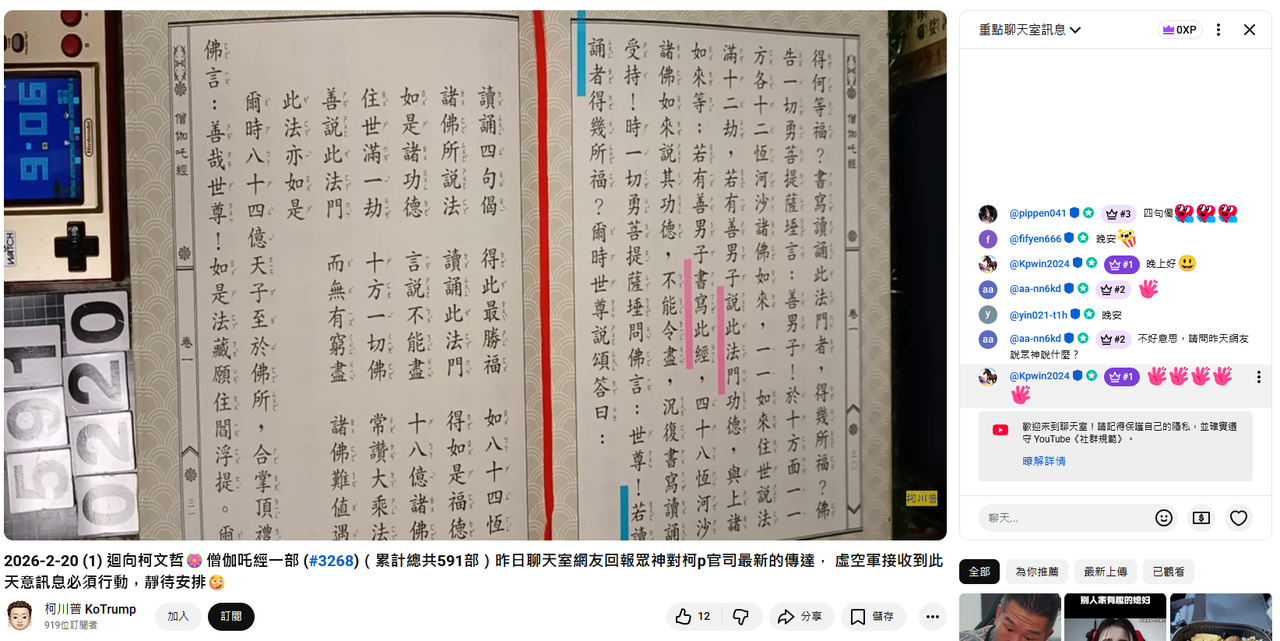 得何等福？書寫讀誦此法門者，得幾所福？佛
告一切勇菩提薩埵言：善男子！於十方面一一
方各十二恆河沙諸佛如來，一一如來住世說法
滿十二劫，若有善男子說此法門功德，與上諸
如來等；若有善男子書寫此經，四十八恆河沙
諸佛如來說其功德，不能令盡，況復書寫讀誦
受持！時一切勇菩提薩埵問佛言：世尊！若讀
誦者得幾所福？爾時世尊說頌答曰：
讀誦四句偈 得此最勝福 如八十四恆
諸佛所說法 讀誦此法門 得如是福德
如是諸功德 言說不能盡 十八億諸佛
住世滿一劫 十方一切佛 常讚大乘法
善說此法門 而無有窮盡 諸佛難值遇
此法亦如是
爾時八十四億天子至於佛所，合掌頂禮
佛言：善哉世尊！如是法藏願住閻浮提。爾
僧伽吒經
卷一
三〇
僧伽吒經
卷一
三一
9:06
Nintendo
WATCH
B
A
0
220
1
591
柯川普
2026-2-20 (1) 廻向柯文哲🌸 僧伽吒經一部 (#3268)（累計總共591部）昨日聊天室網友回報眾神對柯p官司最新的傳達． 虛空軍接收到此
天意訊息必須行動，靜待安排😊
柯川普 KoTrump
919位訂閱者
加入
訂閱
12
分享
儲存
重點聊天室訊息
0XP
@pippen041 #3 四句偈
@fifyen666 晚安
@Kpwin2024 #1 晚上好😃
aa @aa-nn6kd #2
f
y @yin021-t1h 晚安
aa @aa-nn6kd #2 不好意思，請問昨天網友
說眾神說什麼？
@Kpwin2024 #1
歡迎來到聊天室！請記得保護自己的隱私，並確實遵
守 YouTube《社群規範》。
瞭解詳情
聊天...
全部
為你推薦
最新上傳
已觀看
別人家有趣的媳婦